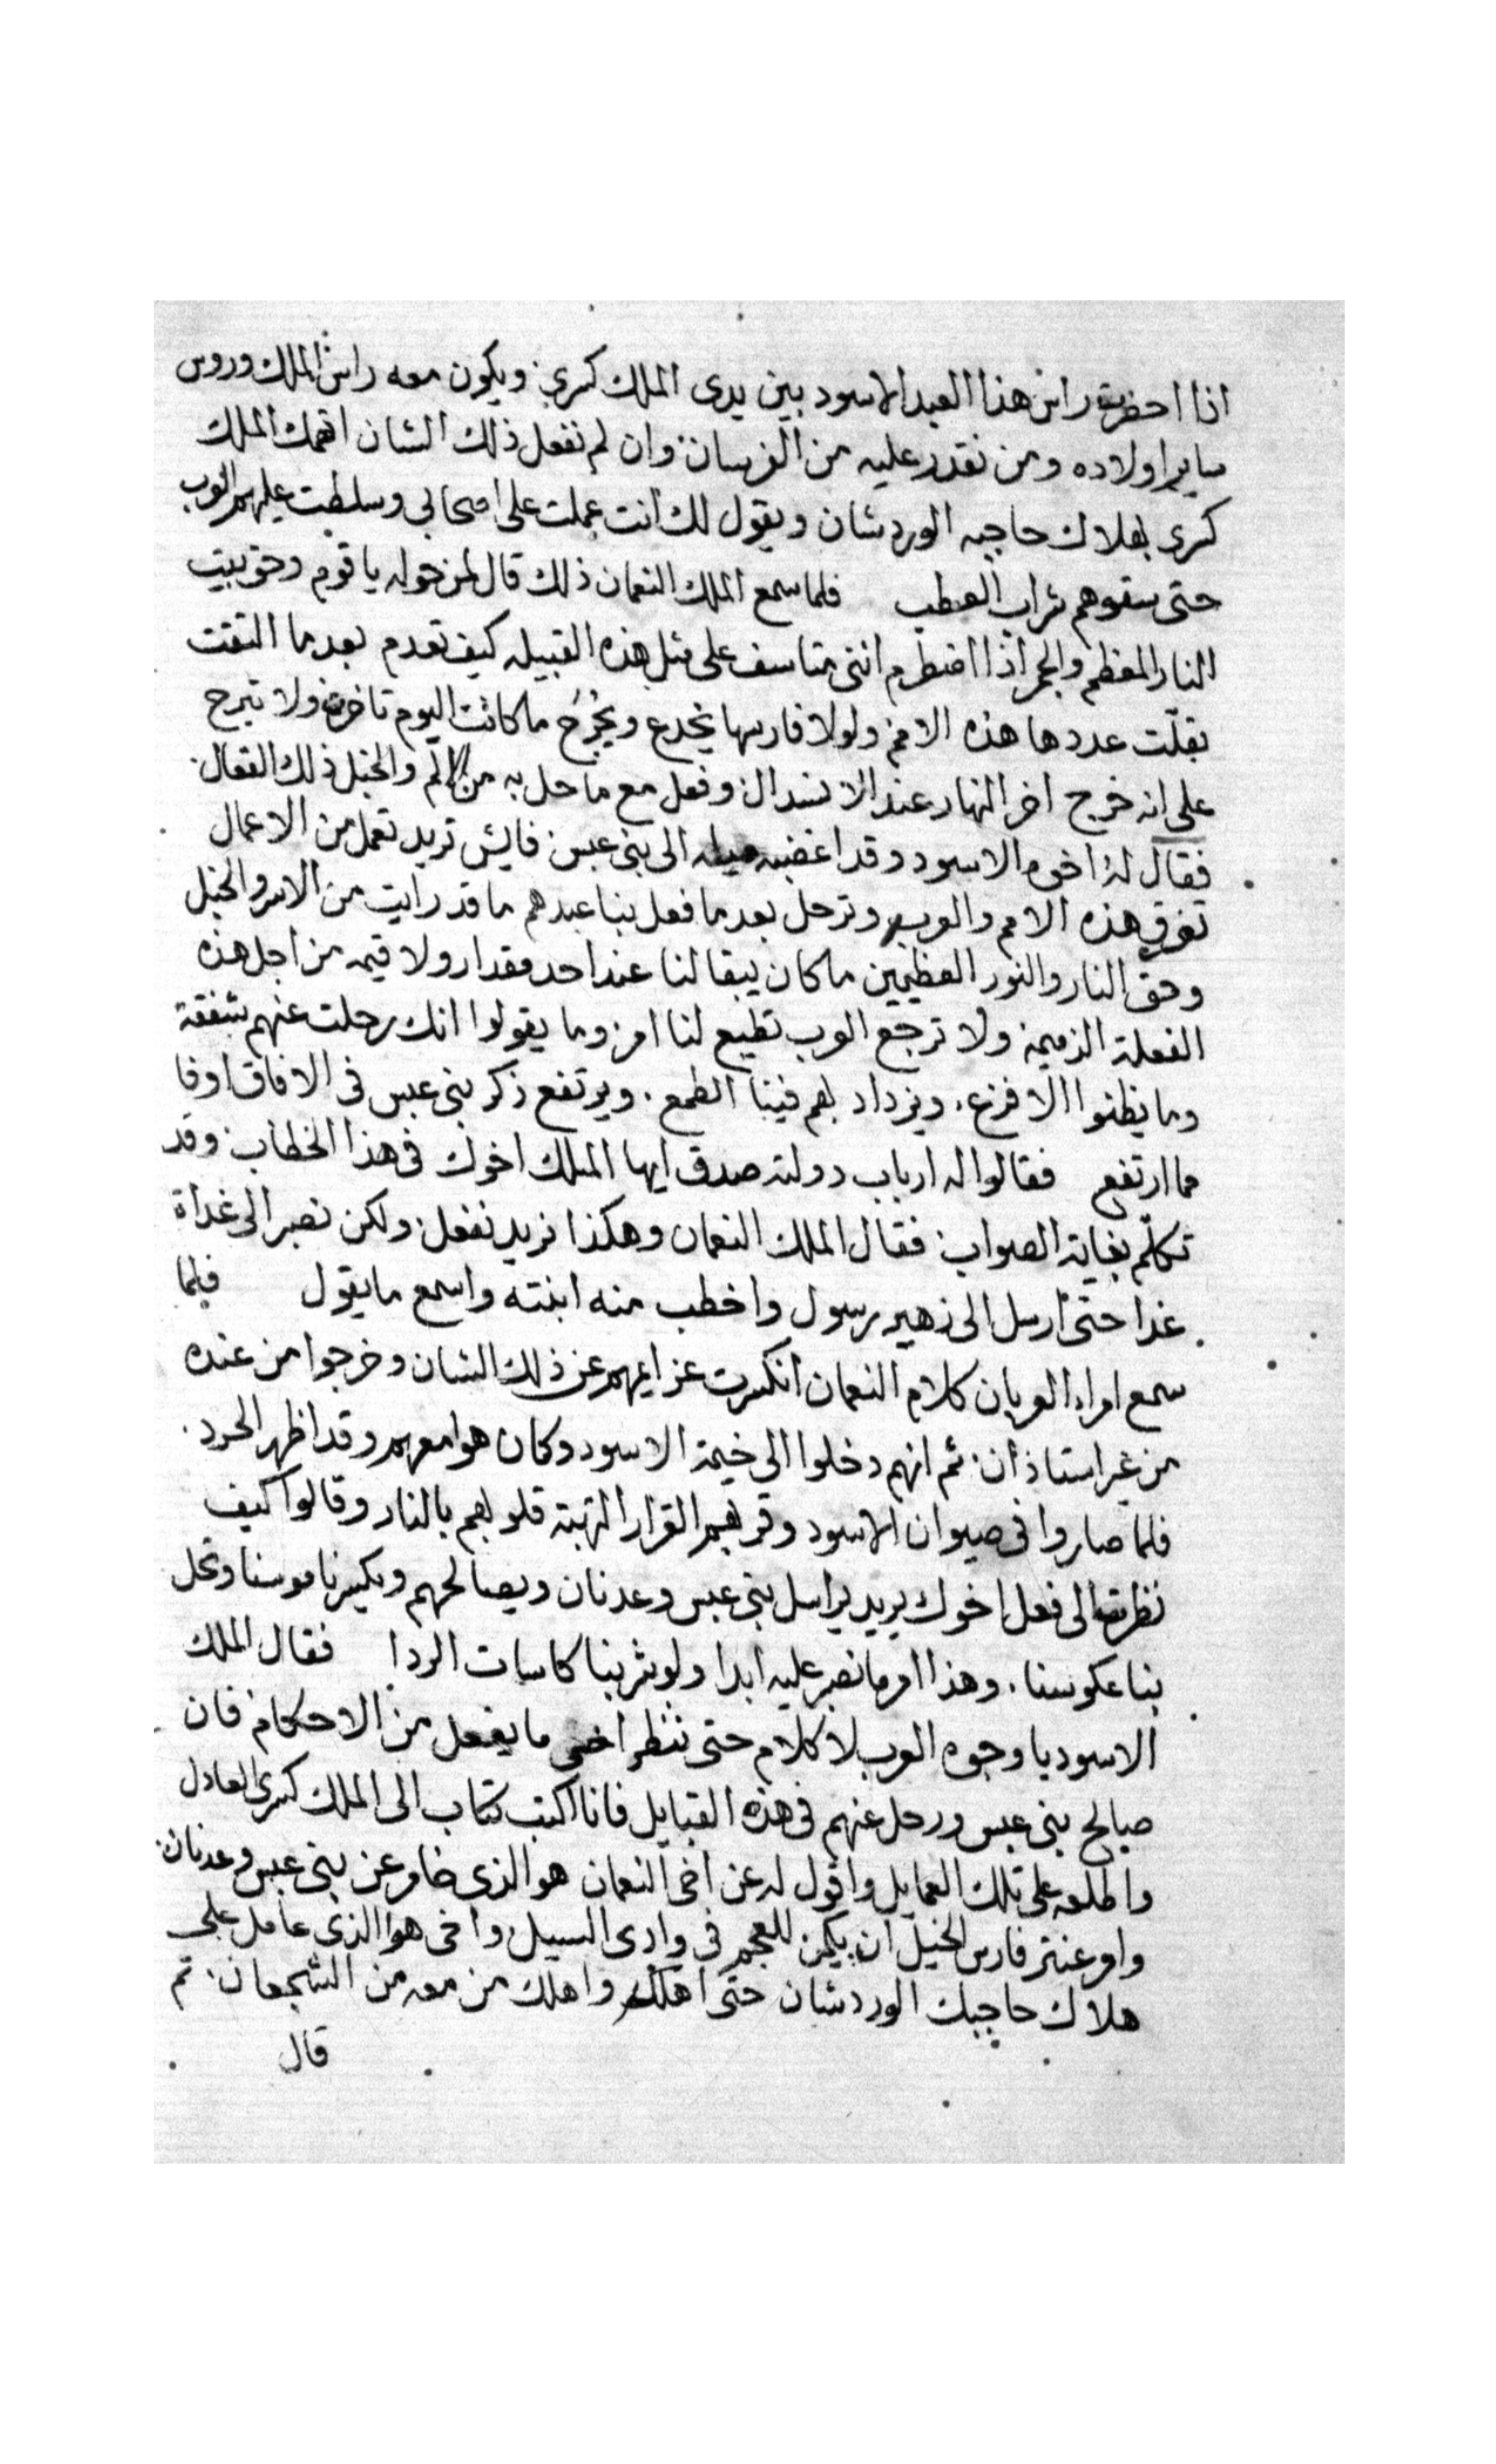 اذا احضرت راس هذا العبد الاسود بين يدى الملك كسرى ويكون معه راس الملك وروس
ساير اولاده ومن تقدر عليه من الفرسان وان لم تفعل ذلك الشان اتهمك الملك
كسرى بهلاك حاجبه الوردشان ويقول لك انت عملت على اصحابى وسلطت عليهم العرب
حتى سقوهم شراب العطب فلما سمع الملك النعمان ذلك قال لمن حوله يا قوم وحق بيت
النار المعظم والجمر اذا اضطرم اننى متاسف على مثل هذه القبيله كيف تعدم بعد ما التقت
بقلّت عددها هذه الامم ولولا فارسها يخدع ويُجْرَح ما كانت اليوم تاخرت ولا تبرح
على انه خرج اخر النهار عند الانسدال وفعل مع ما حل به من الالم والخبل ذلك الفعال
فقال له اخوه الاسود وقد اغضبه ميله الى بنى عبس فايش تريد تعمل من الاعمال
تفرق هذه الامم والعرب وترحل بعد ما فعل بنا عبدهم ما قد رايت من الاسر والخبل
وحق النار والنور العظيمين ما كان يبقا لنا عند احد مقدار ولا قيمه من اجل هذه
الفعلة الذميمه ولا ترجع العرب تطيع لنا امر وما يقولوا انك رحلت عنهم شفقة
وما يظنوا الا فزع. ويزداد بهم فينا الطمع. ويرتفع ذكر بنى عبس فى الافاق اوفا
مما ارتفع فقالوا له ارباب دولته صدق ايها الملك اخوك فى هذا الخطاب وقد
تكلّم بغاية الصواب فقال الملك النعمان وهكذا نريد نفعل ولكن نصبر الى غداة
غدا حتى ارسل الى زهير رسول واخطب منه ابنته واسمع ما يقول فلما
سمع امراء العربان كلام النعمان انكسرت عزايمهم عن ذلك الشان وخرجوا من عنده
من غير استاذان ثم انهم دخلوا الى خيمة الاسود وكان هو معهم وقد اظهر الحرد.
فلما صاروا فى صيوان الاسود وقر بهم القرار التهبة قلوبهم بالنار وقالوا كيف
نظرت الى فعل اخوك يريد يراسل بنى عبس وعدنان ويصالحهم ويكسر ناموسنا وتحل
بنا عكوسنا. وهذا امر ما نصبر عليه ابدا ولو شربنا كاسات الردا فقال الملك
الاسود يا وجوه العرب لا كلام حتى ننظر اخى ما يفعل من الاحكام فان
صالح بنى عبس ورحل عنهم فى هذه القبايل فانا اكتب كتاب الى الملك كسرى العادل
واطلعه على تلك العمايل واقول له عن اخى النعمان هو الذى خامر عن بنى عبس وعدنان
وامر عنتر فارس الخيل ان يكمن للعجم فى وادى السيل واخى هو الذى عامل على
هلاك حاجبك الوردشان حتى اهلك واهلك من معه من الشجعان. ثم
قال